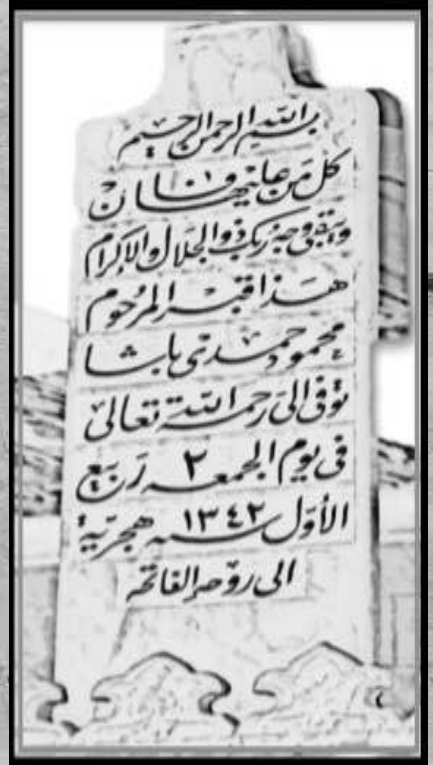 بسم الله الرحمن الرحيم
كل من عليها فان
ويبقى وجه ربك ذو الجلال والإكرام
هذا قبر المرحوم
محمود حمدى باشا
توفى الى رحمة الله تعالى
فى يوم الجمعه ٢ ربيع
الأول سنه ١٣٤٢ هجرية
الى روحه الفاتحه